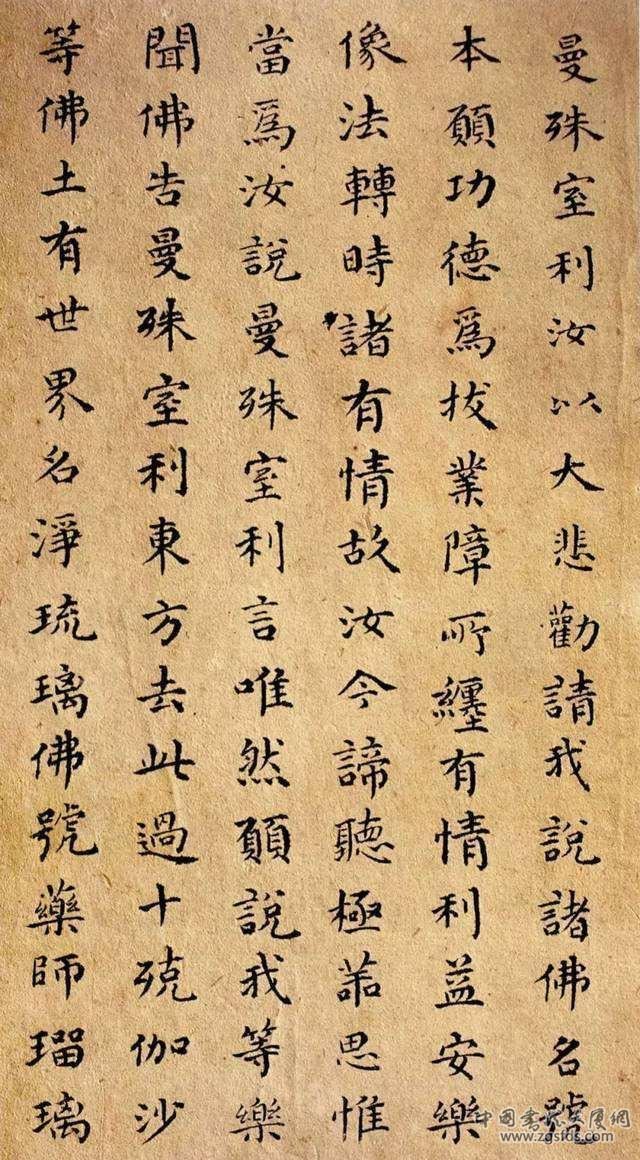 曼殊室利汝以大悲勸請我說諸佛名號
本願功德爲拔業障所纏有情利益安樂
像法轉時諸有情故汝今諦聽極善思惟
當爲汝說曼殊室利言唯然願說我等樂
聞佛告曼殊室利東方去此過十殑伽沙
等佛土有世界名淨琉璃佛號藥師瑠璃
www.zgsfds.com